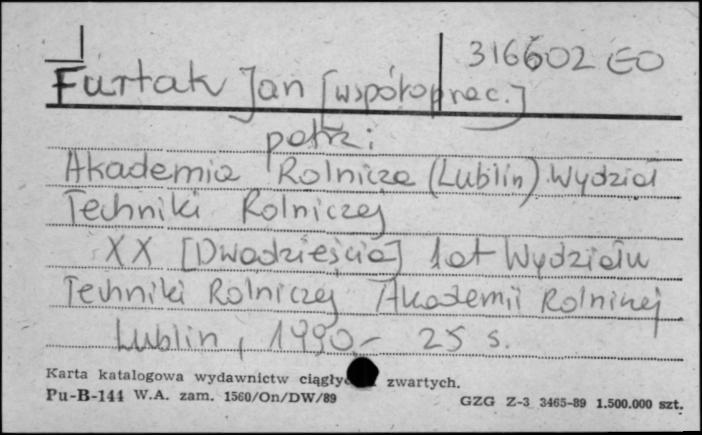 316602 EO
Furtak Jan [współoprac.]
patrz:
Akademia Rolnicza (Lublin). Wydział
Techniki Rolniczej
XX [Dwadzieścia] lat Wydziału
Techniki Rolniczej Akademii Rolniczej
Lublin, 1990.- 25 s.
Karta katalogowa wydawnictw zwartych.
Pu-B-144 W.A. zam. 1560/On/DW/89
GZG Z-3 3465-89 1.500.000 szt.